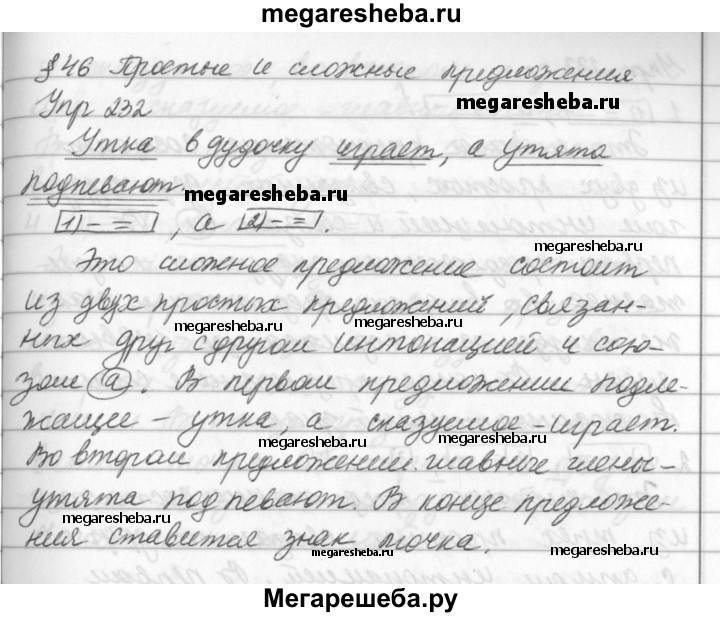 megaresheba.ru
§46 Простые и сложные предложения
megaresheba.ru
Упр 232
Утка в дудочку играет, а утята
подпевают.
megaresheba.ru
1) - = , а 2) - = .
megaresheba.ru
Это сложное предложение состоит
из двух простых предложений, связан-
megaresheba.ru megaresheba.ru
ных друг с другом интонацией и сою-
зом а. В первом предложении подле-
megaresheba.ru
жащее - утка, а сказуемое - играет.
megaresheba.ru megaresheba.ru
Во втором предложении главные члены -
утята подпевают. В конце предложе-
megaresheba.ru
ния ставится знак точка.
megaresheba.ru megaresheba.ru
Мегарешеба.ру